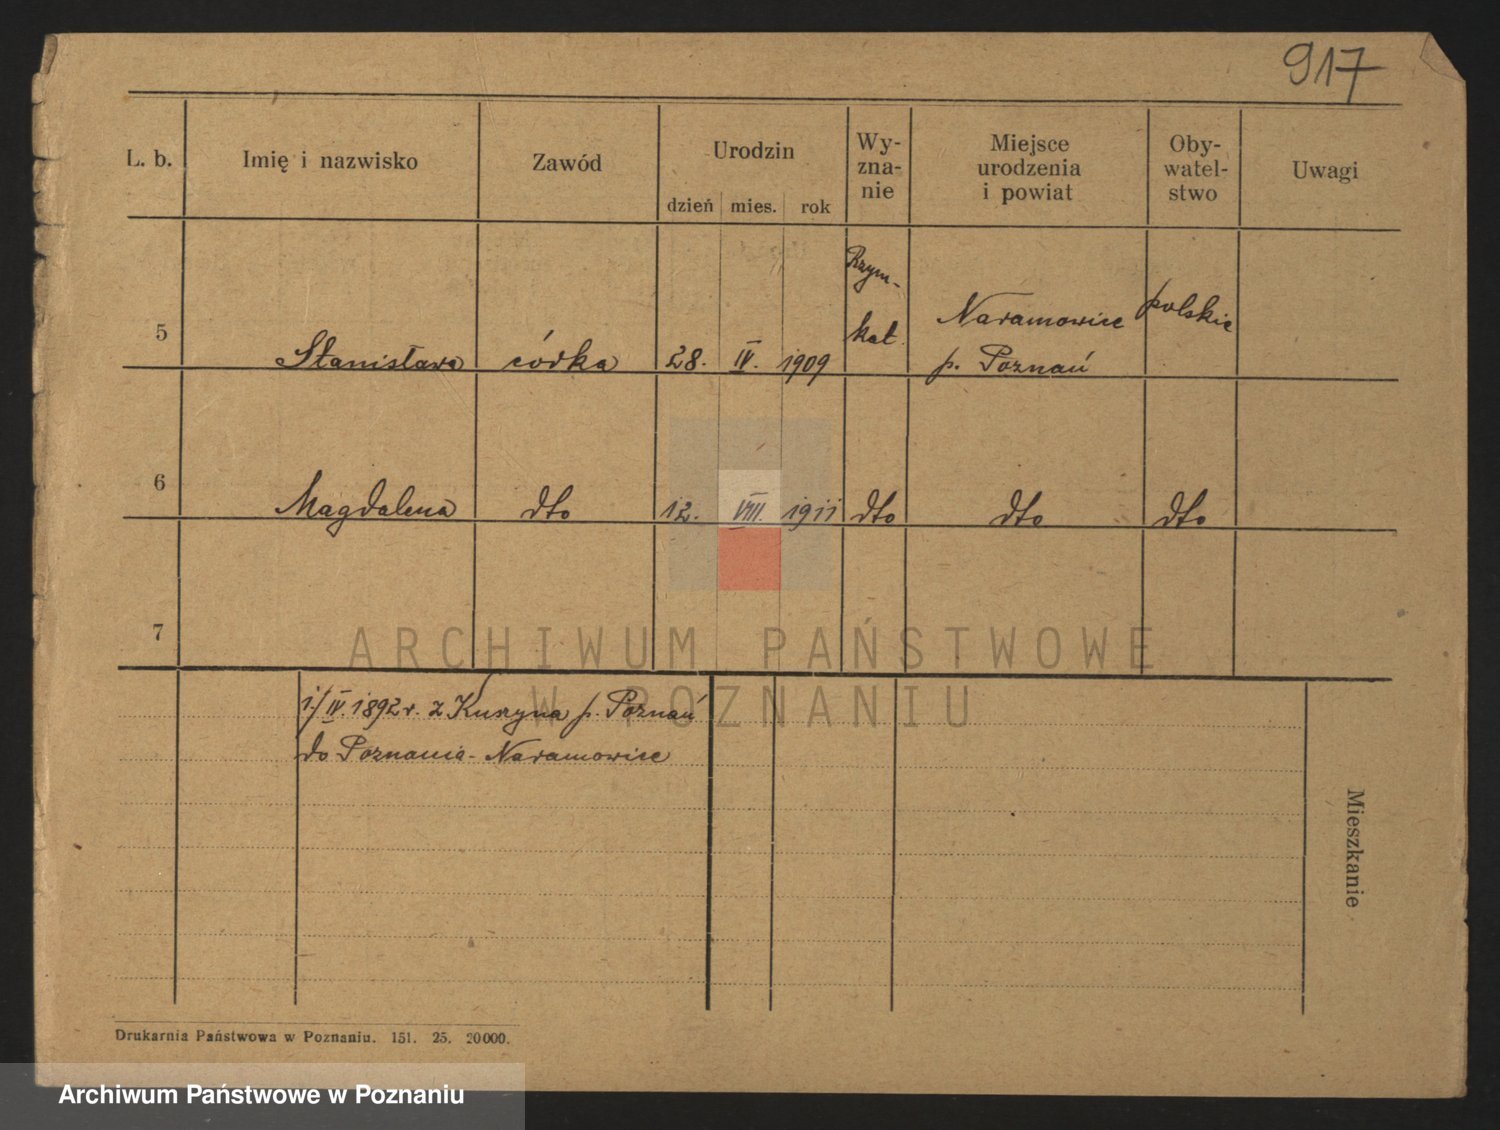 917
L. b. Imię i nazwisko Zawód Urodzin Wy-zna-nie Miejsce urodzenia i powiat Oby-watel-stwo Uwagi
dzień mies. rok
5 Stanisława córka 28. IV. 1909 Rzym-kat. Naramowice p. Poznań polskie
6 Magdalena dto 12. VIII. 1911 dto dto dto
7
ARCHIWUM PAŃSTWOWE
W POZNANIU
1/IV. 1892 r. z p. Poznań
do Poznania-Naramowice
Mieszkanie
Drukarnia Państwowa w Poznaniu. 151. 25. 20000.
Archiwum Państwowe w Poznaniu